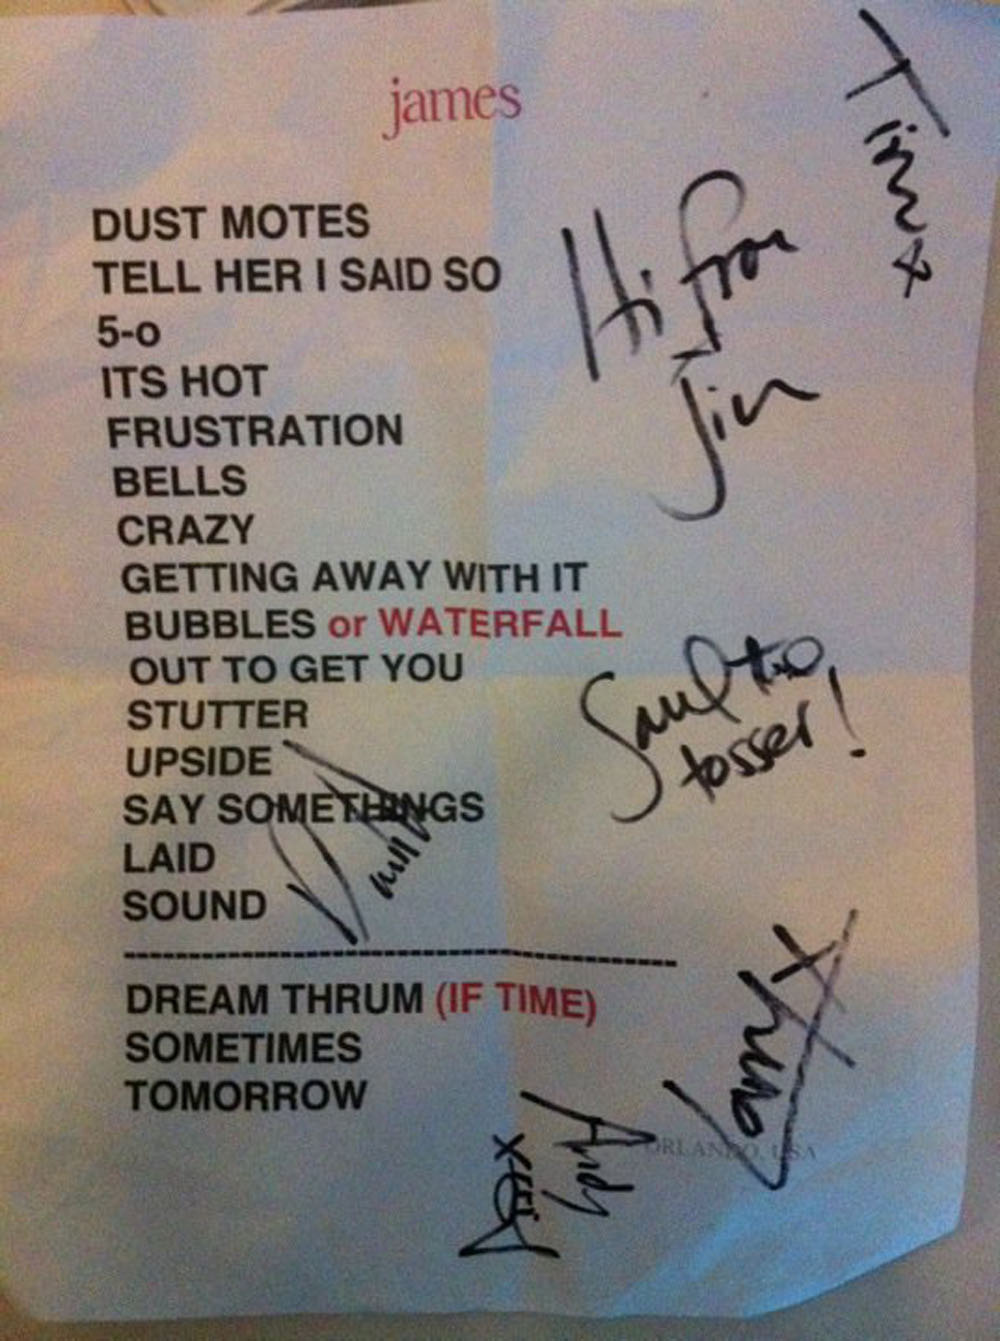 james
Tim x
Hi from
Jim
DUST MOTES
TELL HER I SAID SO
5-o
ITS HOT
FRUSTRATION
BELLS
CRAZY
GETTING AWAY WITH IT
BUBBLES or WATERFALL
OUT TO GET YOU
STUTTER
UPSIDE
SAY SOMETHINGS
LAID
SOUND
Saul
tosser!
Larry X
DREAM THRUM (IF TIME)
SOMETIMES
TOMORROW
Andy
ORLANDO, USA